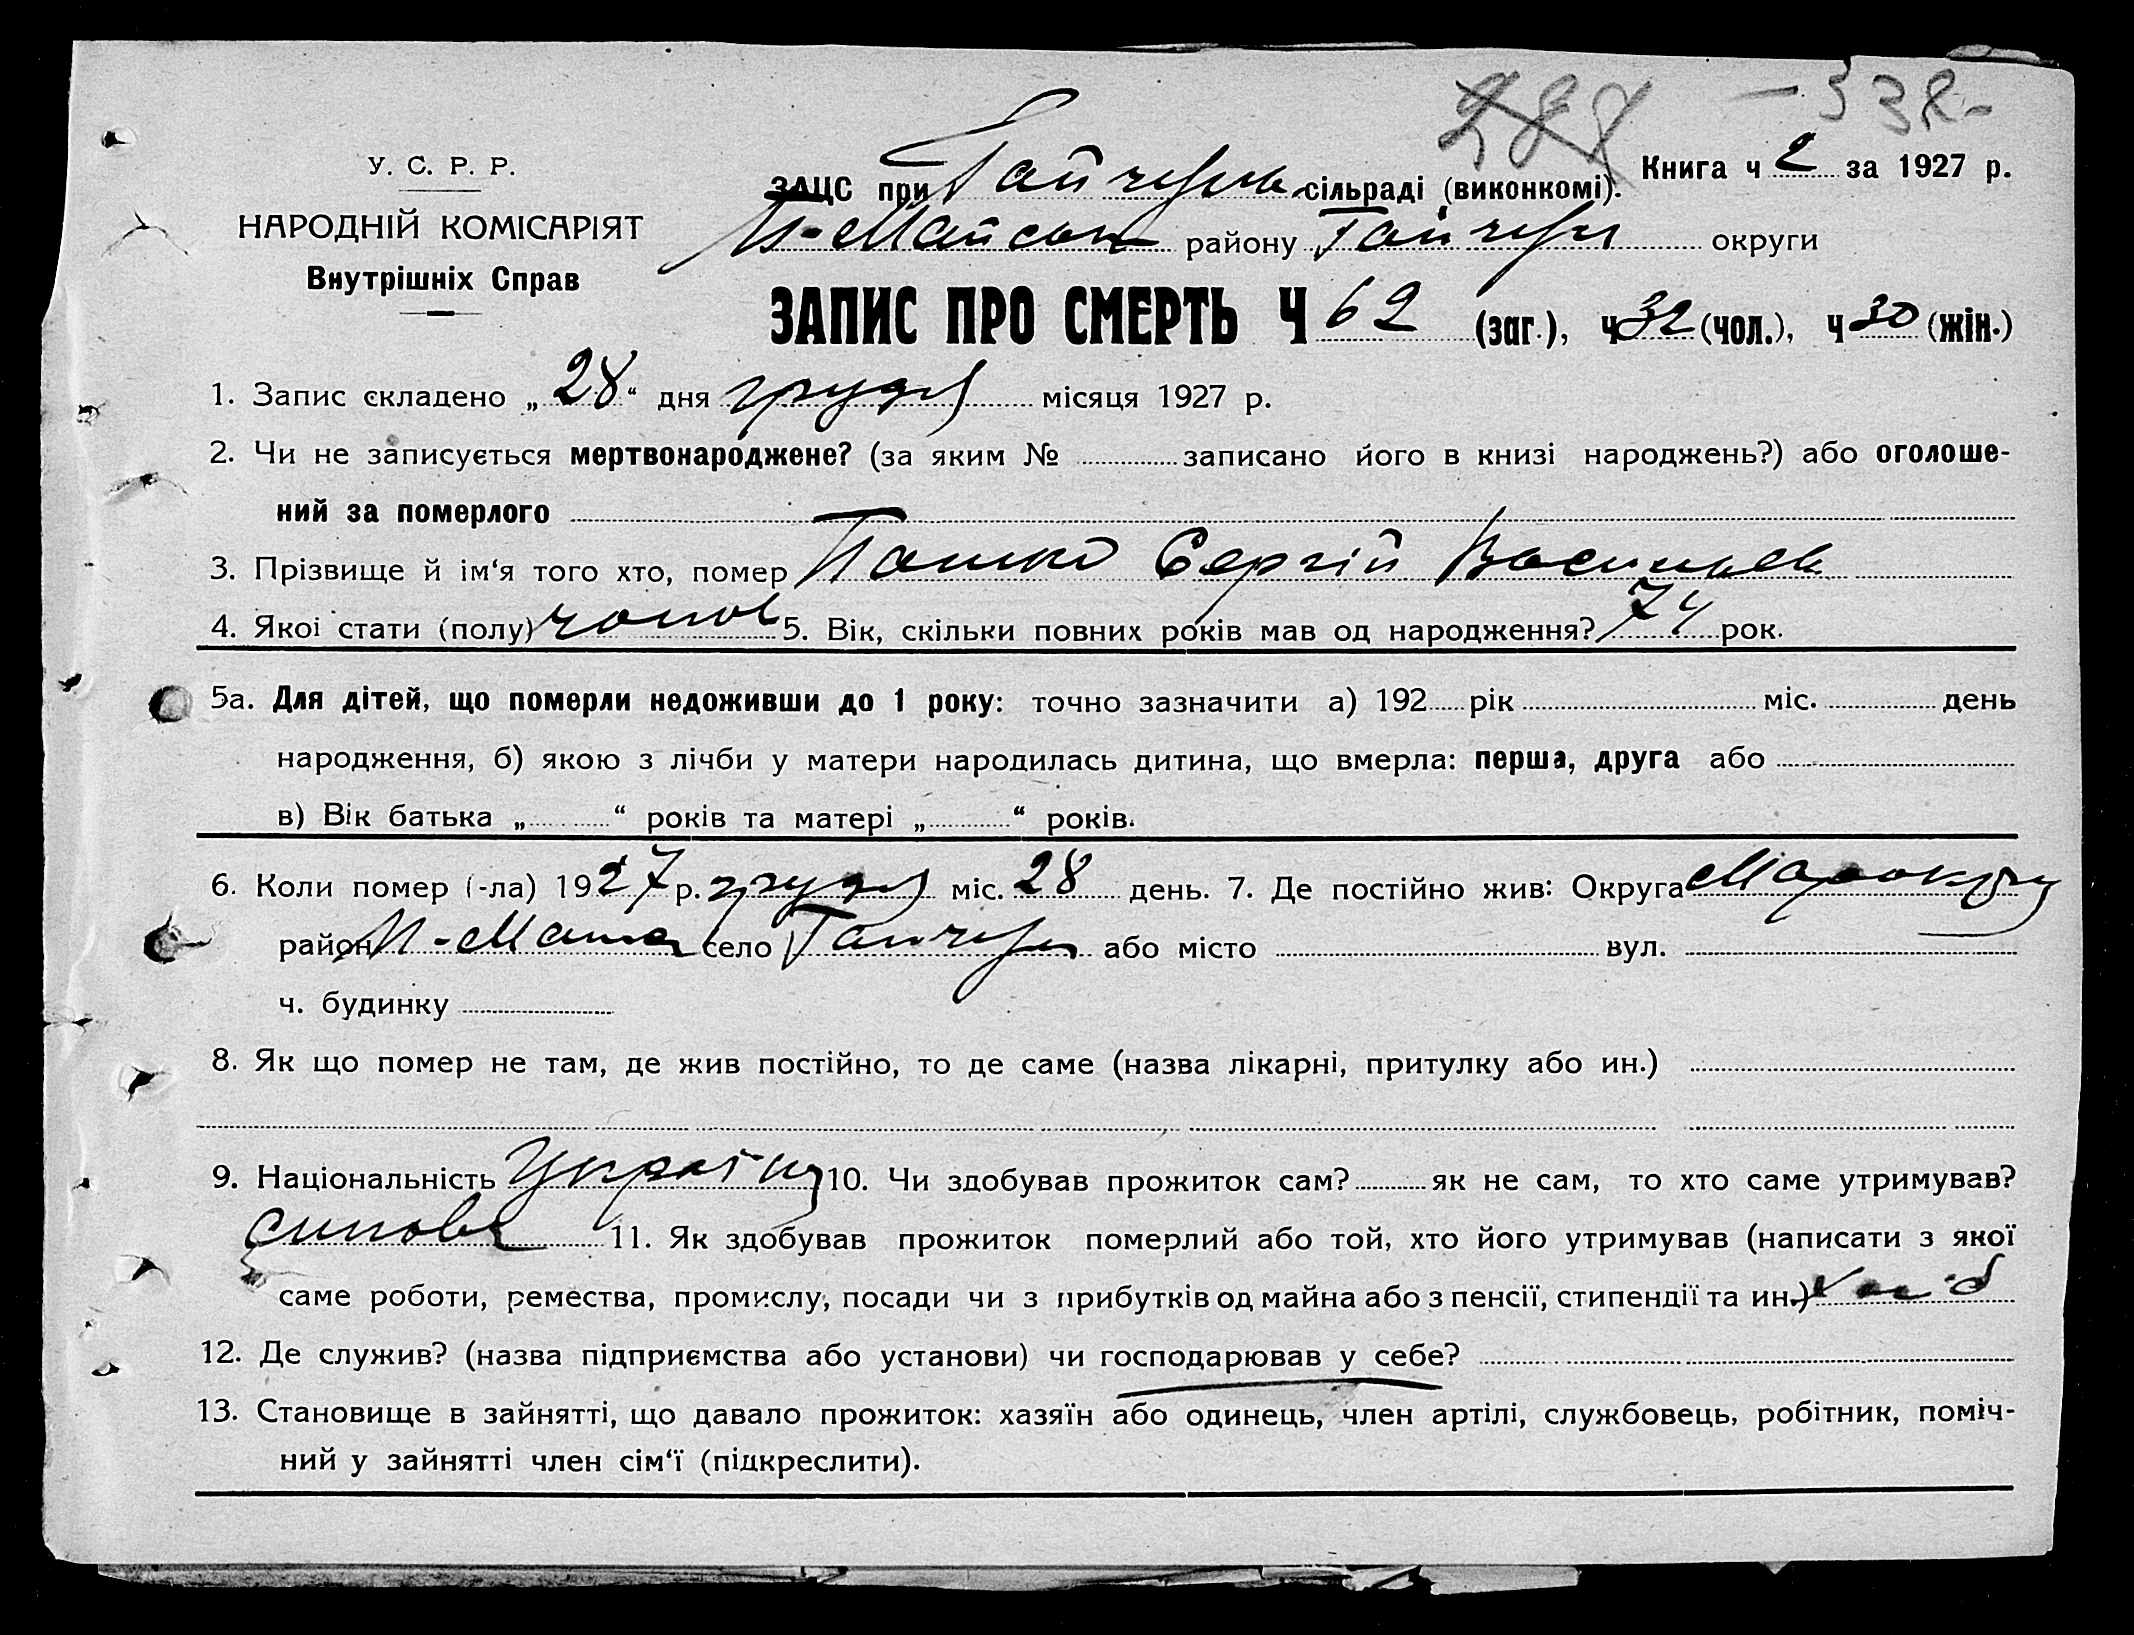 288 – 338 –
У. С. Р. Р.
НАРОДНІЙ КОМІСАРІЯТ
Внутрішніх Справ
Книга ч 2 за 1927 р.
ЗАЦС при Гайчур сільраді (виконкомі).
району Гайчур округи
ЗАПИС ПРО СМЕРТЬ Ч 62 (заг.), ч 32 (чол.), ч 30 (жін.)
1. Запис складено „28“ дня грудня місяця 1927 р.
2. Чи не записується мертвонароджене? (за яким № записано його в книзі народжень?) або оголоше-
ний за померлого
3. Прізвище й ім‘я того хто, помер Сергій
4. Якої стати (полу) чолов 5. Вік, скільки повних років мав од народження? 74 рок.
5а. Для дітей, що померли недоживши до 1 року: точно зазначити а) 192 рік міс. день
народження, б) якою з лічби у матери народилась дитина, що вмерла: перша, друга або
в) Вік батька „ “ років та матері „ “ років.
6. Коли помер (-ла) 1927 р. грудня міс. 28 день. 7. Де постійно жив: Округа
район село або місто вул.
ч. будинку
8. Як що помер не там, де жив постійно, то де саме (назва лікарні, притулку або ин.)
9. Національність Україн 10. Чи здобував прожиток сам? як не сам, то хто саме утримував?
11. Як здобував прожиток померлий або той, хто його утримував (написати з якої
саме роботи, ремества, промислу, посади чи з прибутків од майна або з пенсії, стипендії та ин.)
12. Де служив? (назва підприємства або установи) чи господарював у себе?
13. Становище в зайнятті, що давало прожиток: хазяїн або одинець, член артілі, службовець, робітник, поміч-
ний у зайнятті член сім‘ї (підкреслити).